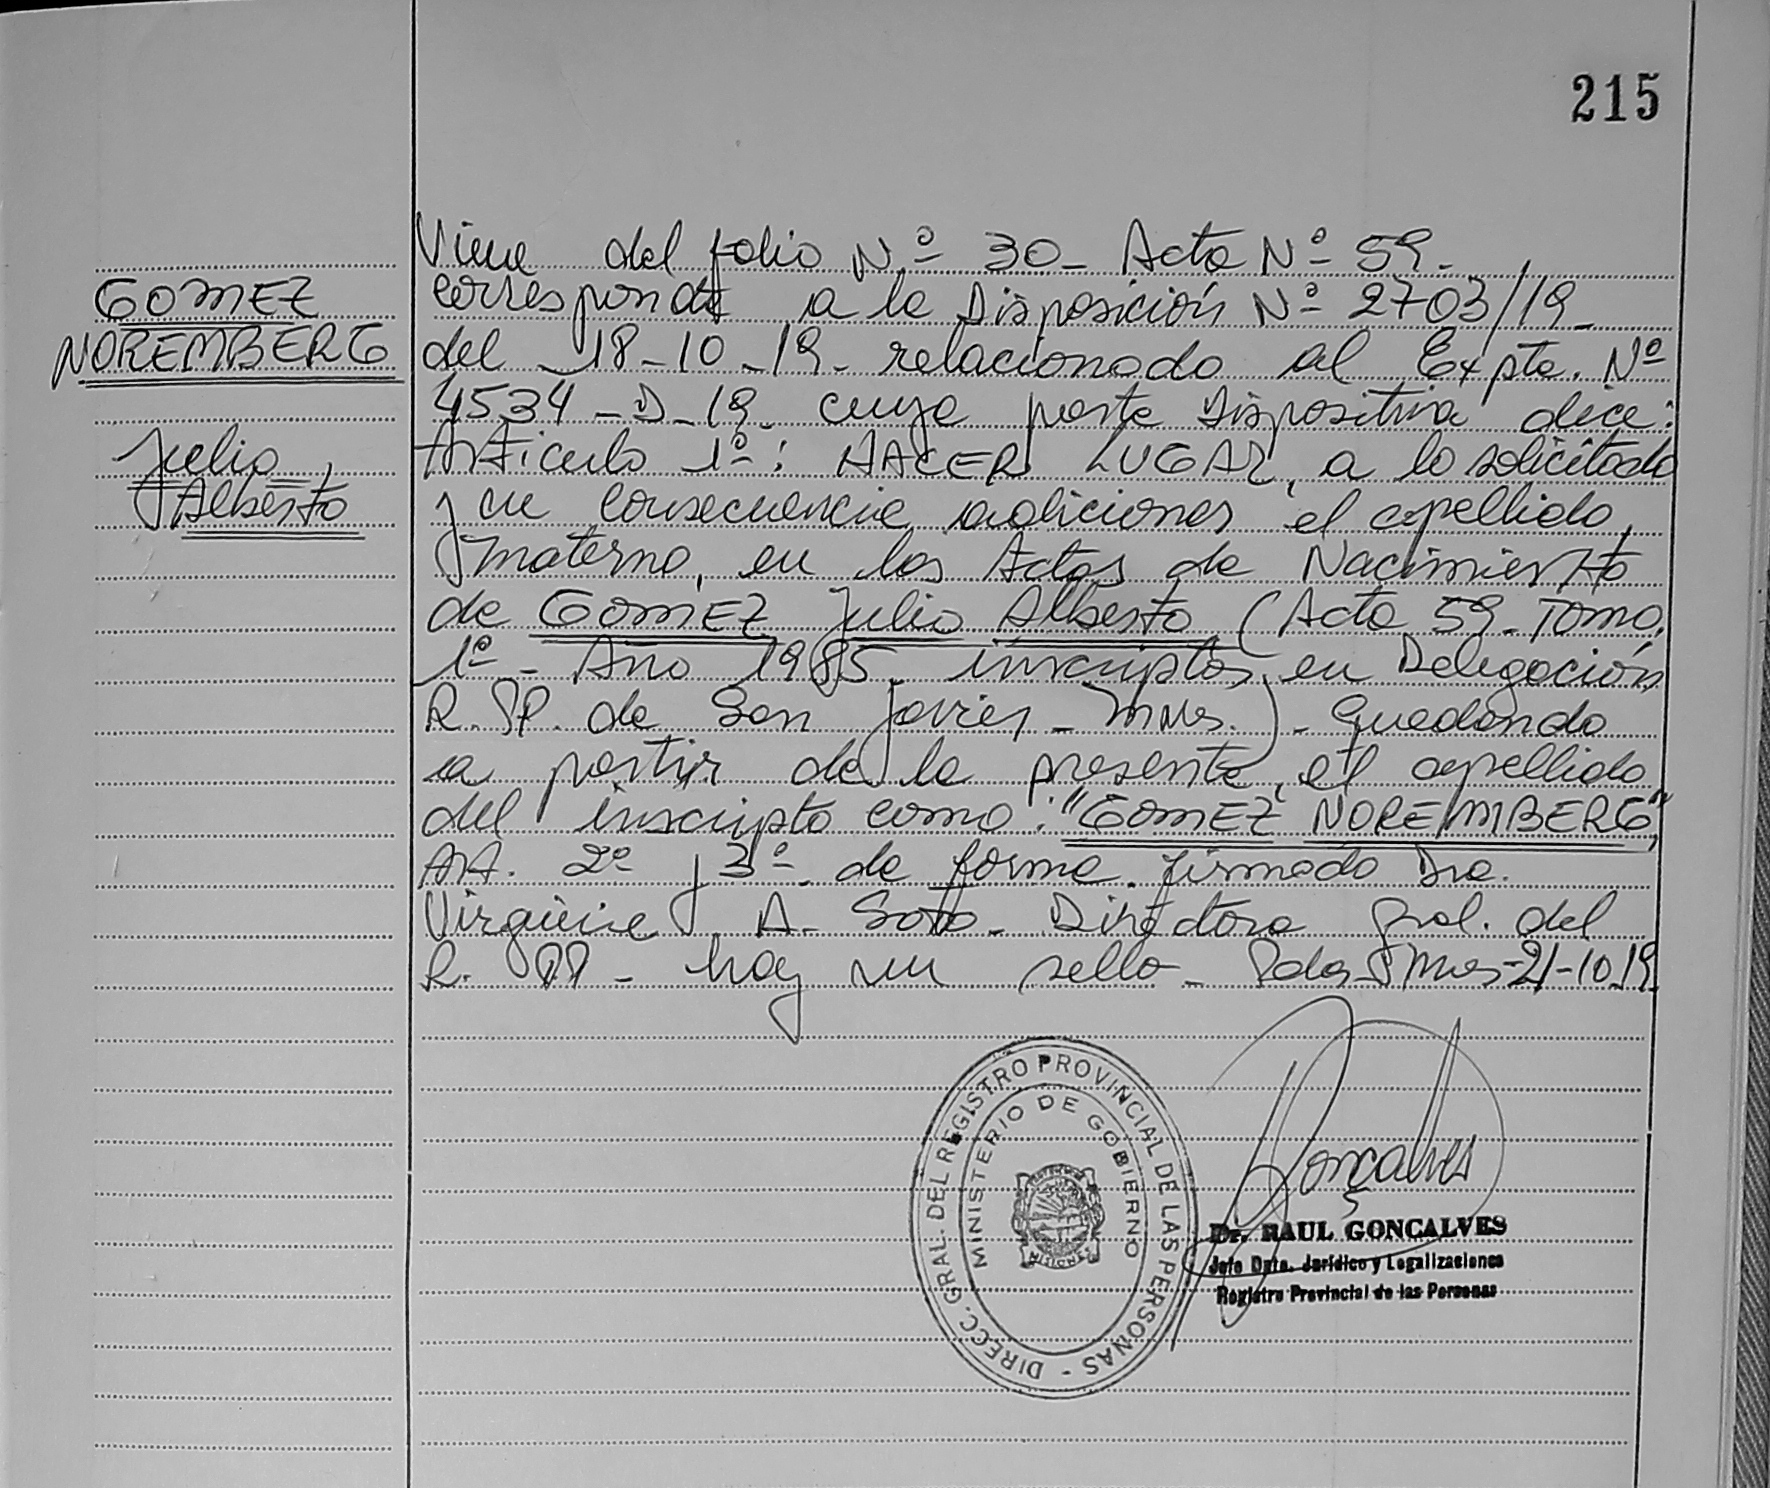 215
GOMEZ
NOREMBERG
Julio,
Alberto
Viene del folio Nº 30_ Acta Nº 59_
corresponde a la Disposición Nº 2703/19_
del _18_10_19_ relacionado al Expte. Nº
4534_D_19_ cuya parte Dispositiva dice:
Artículo 1º: HACER LUGAR, a lo solicitado
y en consecuencia adicionar el apellido
materno, en las Actas de Nacimiento
de GOMEZ Julio Alberto (Acta 59_Tomo
1º_ Año 1985_ inscriptos en Delegación
R.PP. de San Javier_Mnes.)_ Quedando
a partir de la presente, el apellido
del inscripto como: "GOMEZ NOREMBERG",
Art. 2º y 3º_ de forma. firmado Dra.
Virginia A. Soto_ Directora Gral. del
R. PP_ hay un sello_ Pdas Mnes-21-10.19.
DIRECC. GRAL. DEL REGISTRO PROVINCIAL DE LAS PERSONAS -
MINISTERIO DE GOBIERNO
MISIONES
Gonçalves
Dr. RAUL GONCALVES
Jefe Dpto. Jurídico y Legalizaciones
Registro Provincial de las Personas